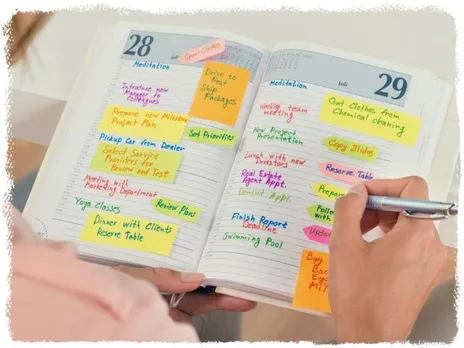 28
Juli
Sport Clothes
Meditation
Drive to
Post
Ship
Packages
Introduce new
Manager to
colleagues
Prepare new Milestone
Project Plan
Set Priorities
Pickup Car from Dealer
Select Service
Providers for
Review and Test
Meeting with
Marketing Department
Review Plans
Yoga classes
Dinner with Clients
Reserve Table
Juli
29
Meditation
Get Clothes from
Chemical cleaning
Weekly team
meeting
New Project
Presentation
Copy Slides
Lunch with new
investors
Reserve Table
Real Estate
Agent Appt.
Dentist Appt.
Finish Report
Deadline
Swimming Pool
Buy